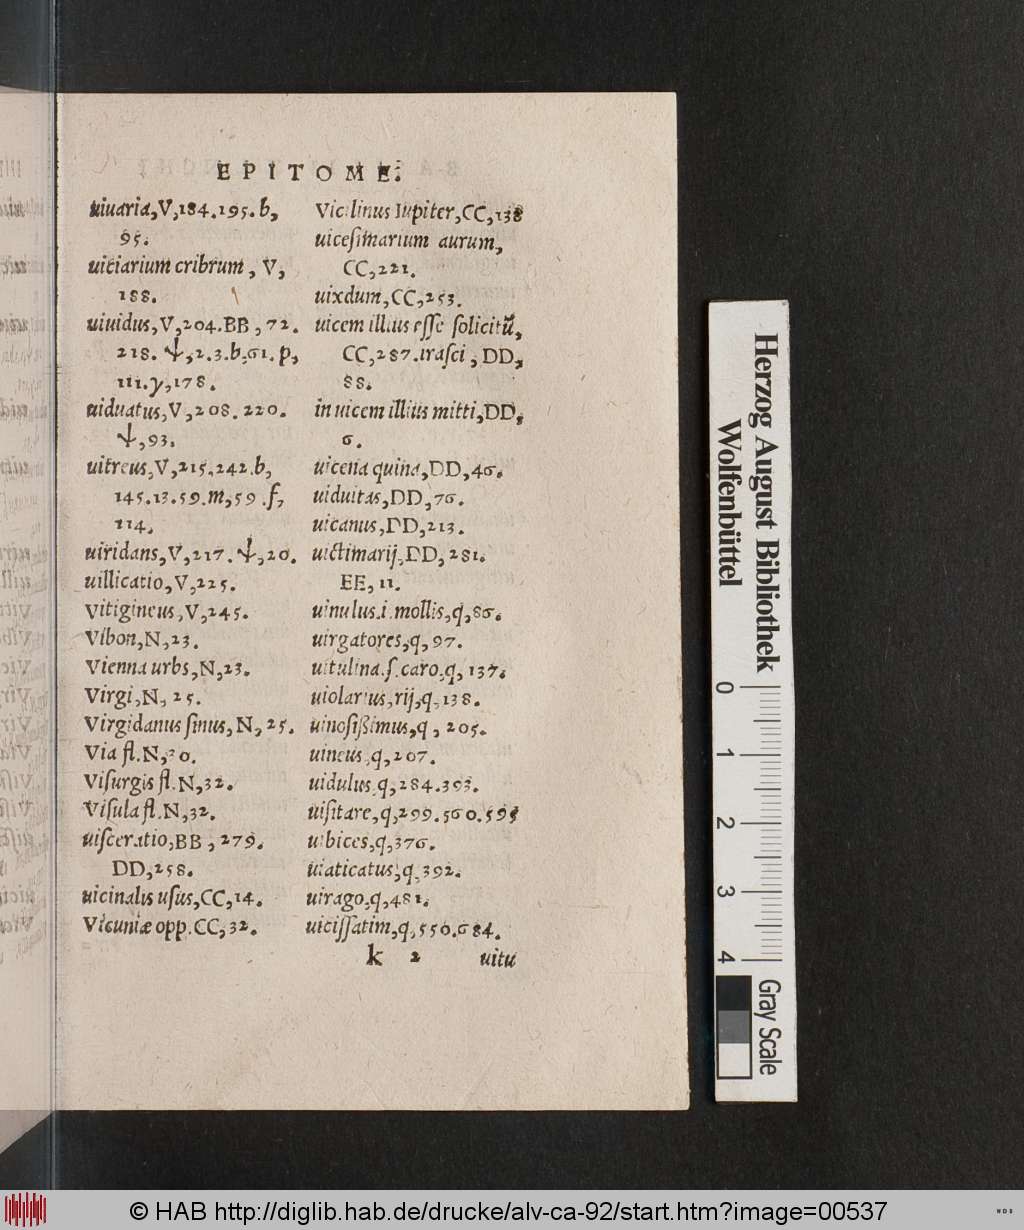 EPITOME.
uiuaria,V,184.195.b,
95.
uitiarium cribrum, V,
188.
uiuidus,V,204.BB,72.
218. Ψ,2.3.b.61.p,
111.y,178.
uiduatus,V,208.220.
Ψ,93.
uitreus,V,215.242.b,
145.13.59.m,59.f,
114.
uiridans,V,217.Ψ,20.
uillicatio,V,225.
Vitigineus,V,245.
Vibon,N,23.
Vienna urbs,N,23.
Virgi,N,25.
Virgidanus ſinus,N,25.
Via fl.N,30.
Viſurgis fl.N,32.
Viſula fl.N,32.
uiſceratio,BB,279.
DD,258.
uicinalis uſus,CC,14.
Vicuniæ opp.CC,32.
Vicilinus Iupiter,CC,138
uiceſimarium aurum,
CC,221.
uixdum,CC,253.
uicem illius eſſe ſolicitũ,
CC,287.iraſci,DD,
88.
in uicem illius mitti,DD,
6.
uicena quina,DD,46.
uiduitas,DD,76.
uicanus,DD,213.
uictimarij,DD,281.
EE,11.
uinulus.i.mollis,q,86.
uirgatores,q,97.
uitulina.ſ.caro,q,137.
uiolarius,rij,q,138.
uinoſißimus,q,205.
uineus,q,207.
uidulus,q,284.393.
uiſitare,q,299.560.595
uibices,q,376.
uiaticatus,q,392.
uirago,q,481.
uiciſſatim,q,550.684.
k 2 uitu
Herzog August Bibliothek
Wolfenbüttel
0 1 2 3 4
Gray Scale
© HAB http://diglib.hab.de/drucke/alv-ca-92/start.htm?image=00537